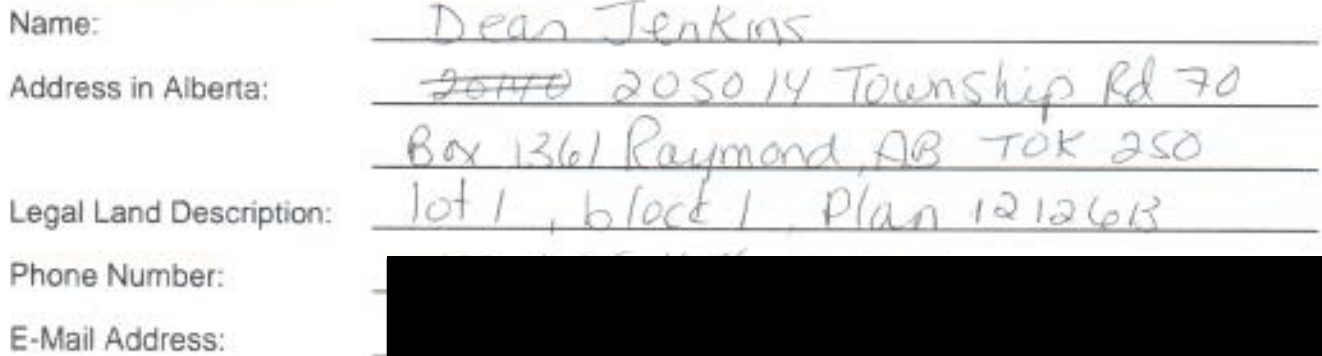 Name: Dean Jenkins
Address in Alberta: 205014 Township Rd 70
Box 1361 Raymond, AB T0K 2S0
Legal Land Description: lot 1, block 1, Plan 1212613
Phone Number:
E-Mail Address: